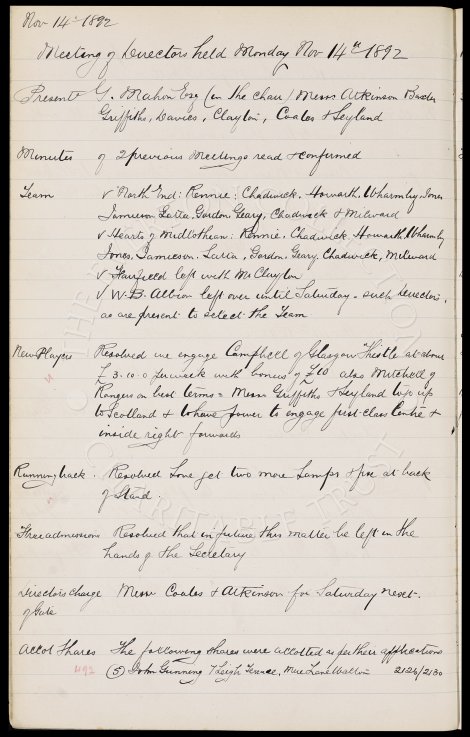 Nov 14th 1892
Meeting of Directors held Monday Nov 14th 1892
Present G. Mahon Esq (in the chair) Messrs Atkinson Baxter
Griffiths, Davies, Clayton, Coates & Leyland
Minutes of 2 previous meetings read & confirmed
Team v North End: Rennie; Chadwick, Howarth, Wharmby, Jones
Jamieson Latta, Gordon, Geary, Chadwick & Milward
v Hearts of Midlothean: Rennie, Chadwick, Howarth, Wharmby
Jones, Jamieson, Latta, Gordon, Geary, Chadwick, Milward
v Fairfield left with Mr Clayton
v W. B. Albion left over until Saturday - such Directors,
as are present to select the Team
New Players Resolved we engage Campbell of Glasgow Thistle at about
£3.10.0 per week with bonus of £10 also Mitchell of
Rangers on best terms = Messrs Griffiths & Leyland to go up
to Scotland & to have power to engage first-class Centre &
inside right forwards
Running track. Resolved some get two more Lamps & fix at back
of Stand.
Free admissions Resolved that in future this matter be left in the
hands of the Secretary
Directors charge Messrs Coates & Atkinson for Saturday next.
of Gate
Allot Shares The following shares were allotted as per their applications
492 (5) John Gunning 7 Leigh Terrace, Mere Lane Walton 2126/2130